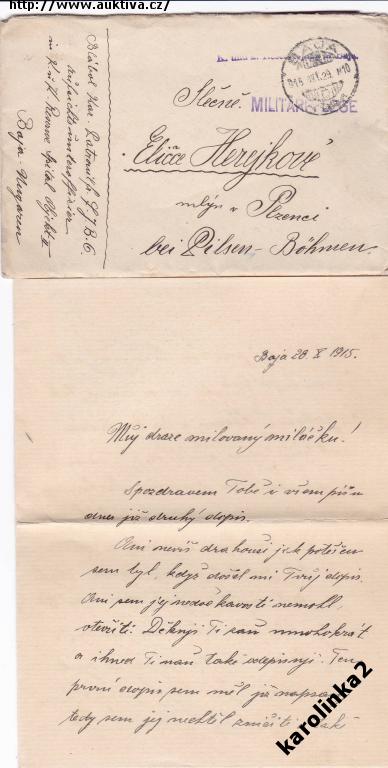 ( http://www.auktiva.cz/ )
MILITÄRPFLEGE
BAJA
915 OKT. 29
Slečně.
Elice Herejkové
mlýn v Plzenci
bei Pilsen - Böhmen.
Baja - Ungarn
Baja 28. X 1915.
Můj draze milovaný miláčku!
Spozdravem Tobě i všem píšu
dnes již druhý dopis.
Ani nevíš drahouši jak potěšen
sem byl, když došel mi Tvůj dopis.
Ani sem jej nedočkavostí nemohl
otevříti. Děkuji Ti zaň mnohokrát
a ihned Ti naň také odepisuji. Ten
první dopis sem měl již napsa
tedy sem jej nechtěl zničiti
karolinka2